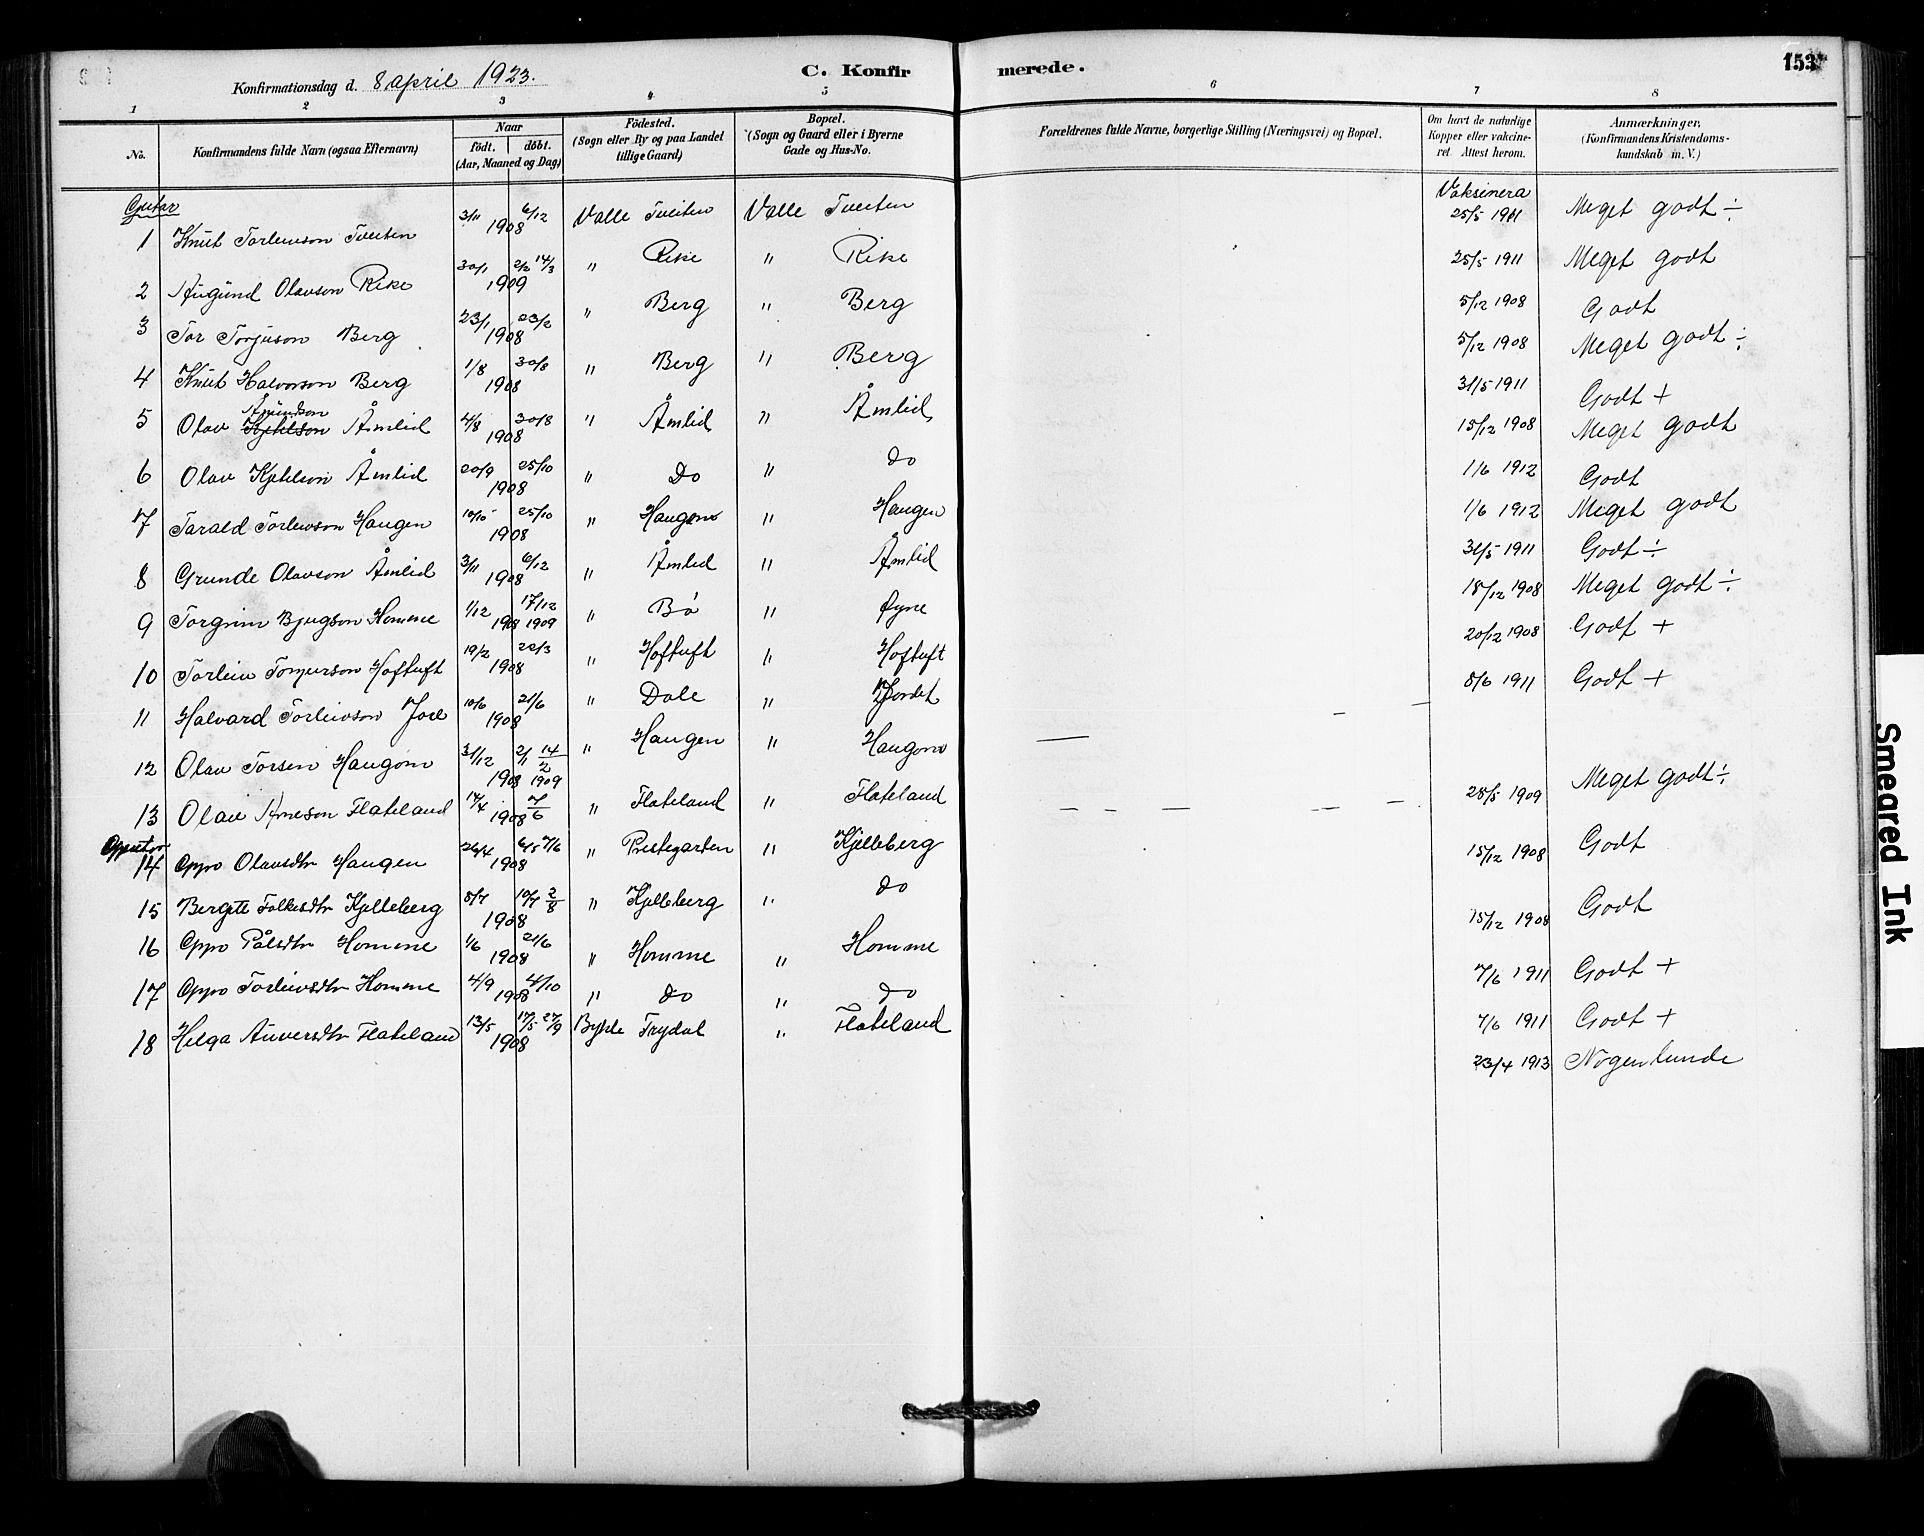 Konfirmationsdag d. 8 april 1923.
C. Konfirmerede.
153
1 2 3 4 5 6 7 8
No. Konfirmandens fulde Navn (ogsaa Efternavn) Naar født. døbt. (Aar, Maaned og Dag) Födested. (Sogn eller By og paa Landet tillige Gaard) Bopæl. (Sogn og Gaard eller i Byerne Gade og Hus-No. Forældrenes fulde Navne, borgerlige Stilling (Næringsvei) og Bopæl. Om havt de naturlige Kopper eller vakcineret Attest herom. Anmærkninger, (Konfirmandens Kristendomskundskab m. V.)
Gutar Vaksinera
1 Knut Torleivson Tveiten 3/11 6/12 1908 Valle Tveiten Valle Tveiten 25/5 1911 Meget godt ÷
2 Augund Olavson Rike 30/1 2/2 14/3 1909 " Rike " Rike 25/5 1911 Meget godt
3 Tor Torjuson Berg 23/1 23/2 1908 " Berg " Berg 5/12 1908 Godt
4 Knut Halvorson Berg 1/8 30/8 1908 " Berg " Berg 5/12 1908 Meget godt ÷
5 Olav Åmundson Kjetelson Åmlid 4/8 30/8 1908 " Åmlid " Åmlid 31/5 1911 Godt +
6 Olav Kjetelson Åmlid 20/9 25/10 1908 " Do " do 15/12 1908 Meget godt
7 Tarald Torleivson Haugen 10/10 25/10 1908 " Haugom " Haugen 1/6 1912 Godt
8 Grunde Olavson Åmlid 3/11 6/12 1908 " Åmlid " Åmlid 1/6 1912 Meget godt
9 Torgrim Bjugson Homme 1/12 17/12 1908 1909 " Bø " Øyne 31/5 1911 Godt ÷
10 Torleiv Tomjurson Hoftuft 19/2 22/3 1908 " Hoftuft " Hoftuft 18/12 1908 Meget godt ÷
11 Halvard Torleivson Jore 10/6 21/6 1908 " Dale " Jordet 20/12 1908 Godt +
12 Olav Torsen Haugom 31/12 2/1 14/2 1908 1909 " Haugen " Haugom 8/6 1911 Godt +
13 Olav Arneson Flateland 17/4 7/6 1908 " Flateland " Flateland 28/5 1909 Meget godt ÷
Gjentor
14 Gyro Olavsdtr Haugen 26/4 6/5 7/6 1908 " Prestegarden " Kjelleberg 15/12 1908 Godt
15 Bergit Folkesdtr Kjelleberg 8/7 10/7 2/8 1908 " Kjelleberg " do 15/12 1908 Godt
16 Gyro Pålsdtr Homme 1/6 21/6 1908 " Homme " Homme 7/6 1911 Godt +
17 Gyro Torleivsdtr Homme 4/9 4/10 1908 " do " do 7/6 1911 Godt +
18 Helga Auversdtr Flateland 13/5 17/5 27/9 1908 Bykle Trydal " Flateland 23/4 1913 Nogenlunde
Smeared Ink